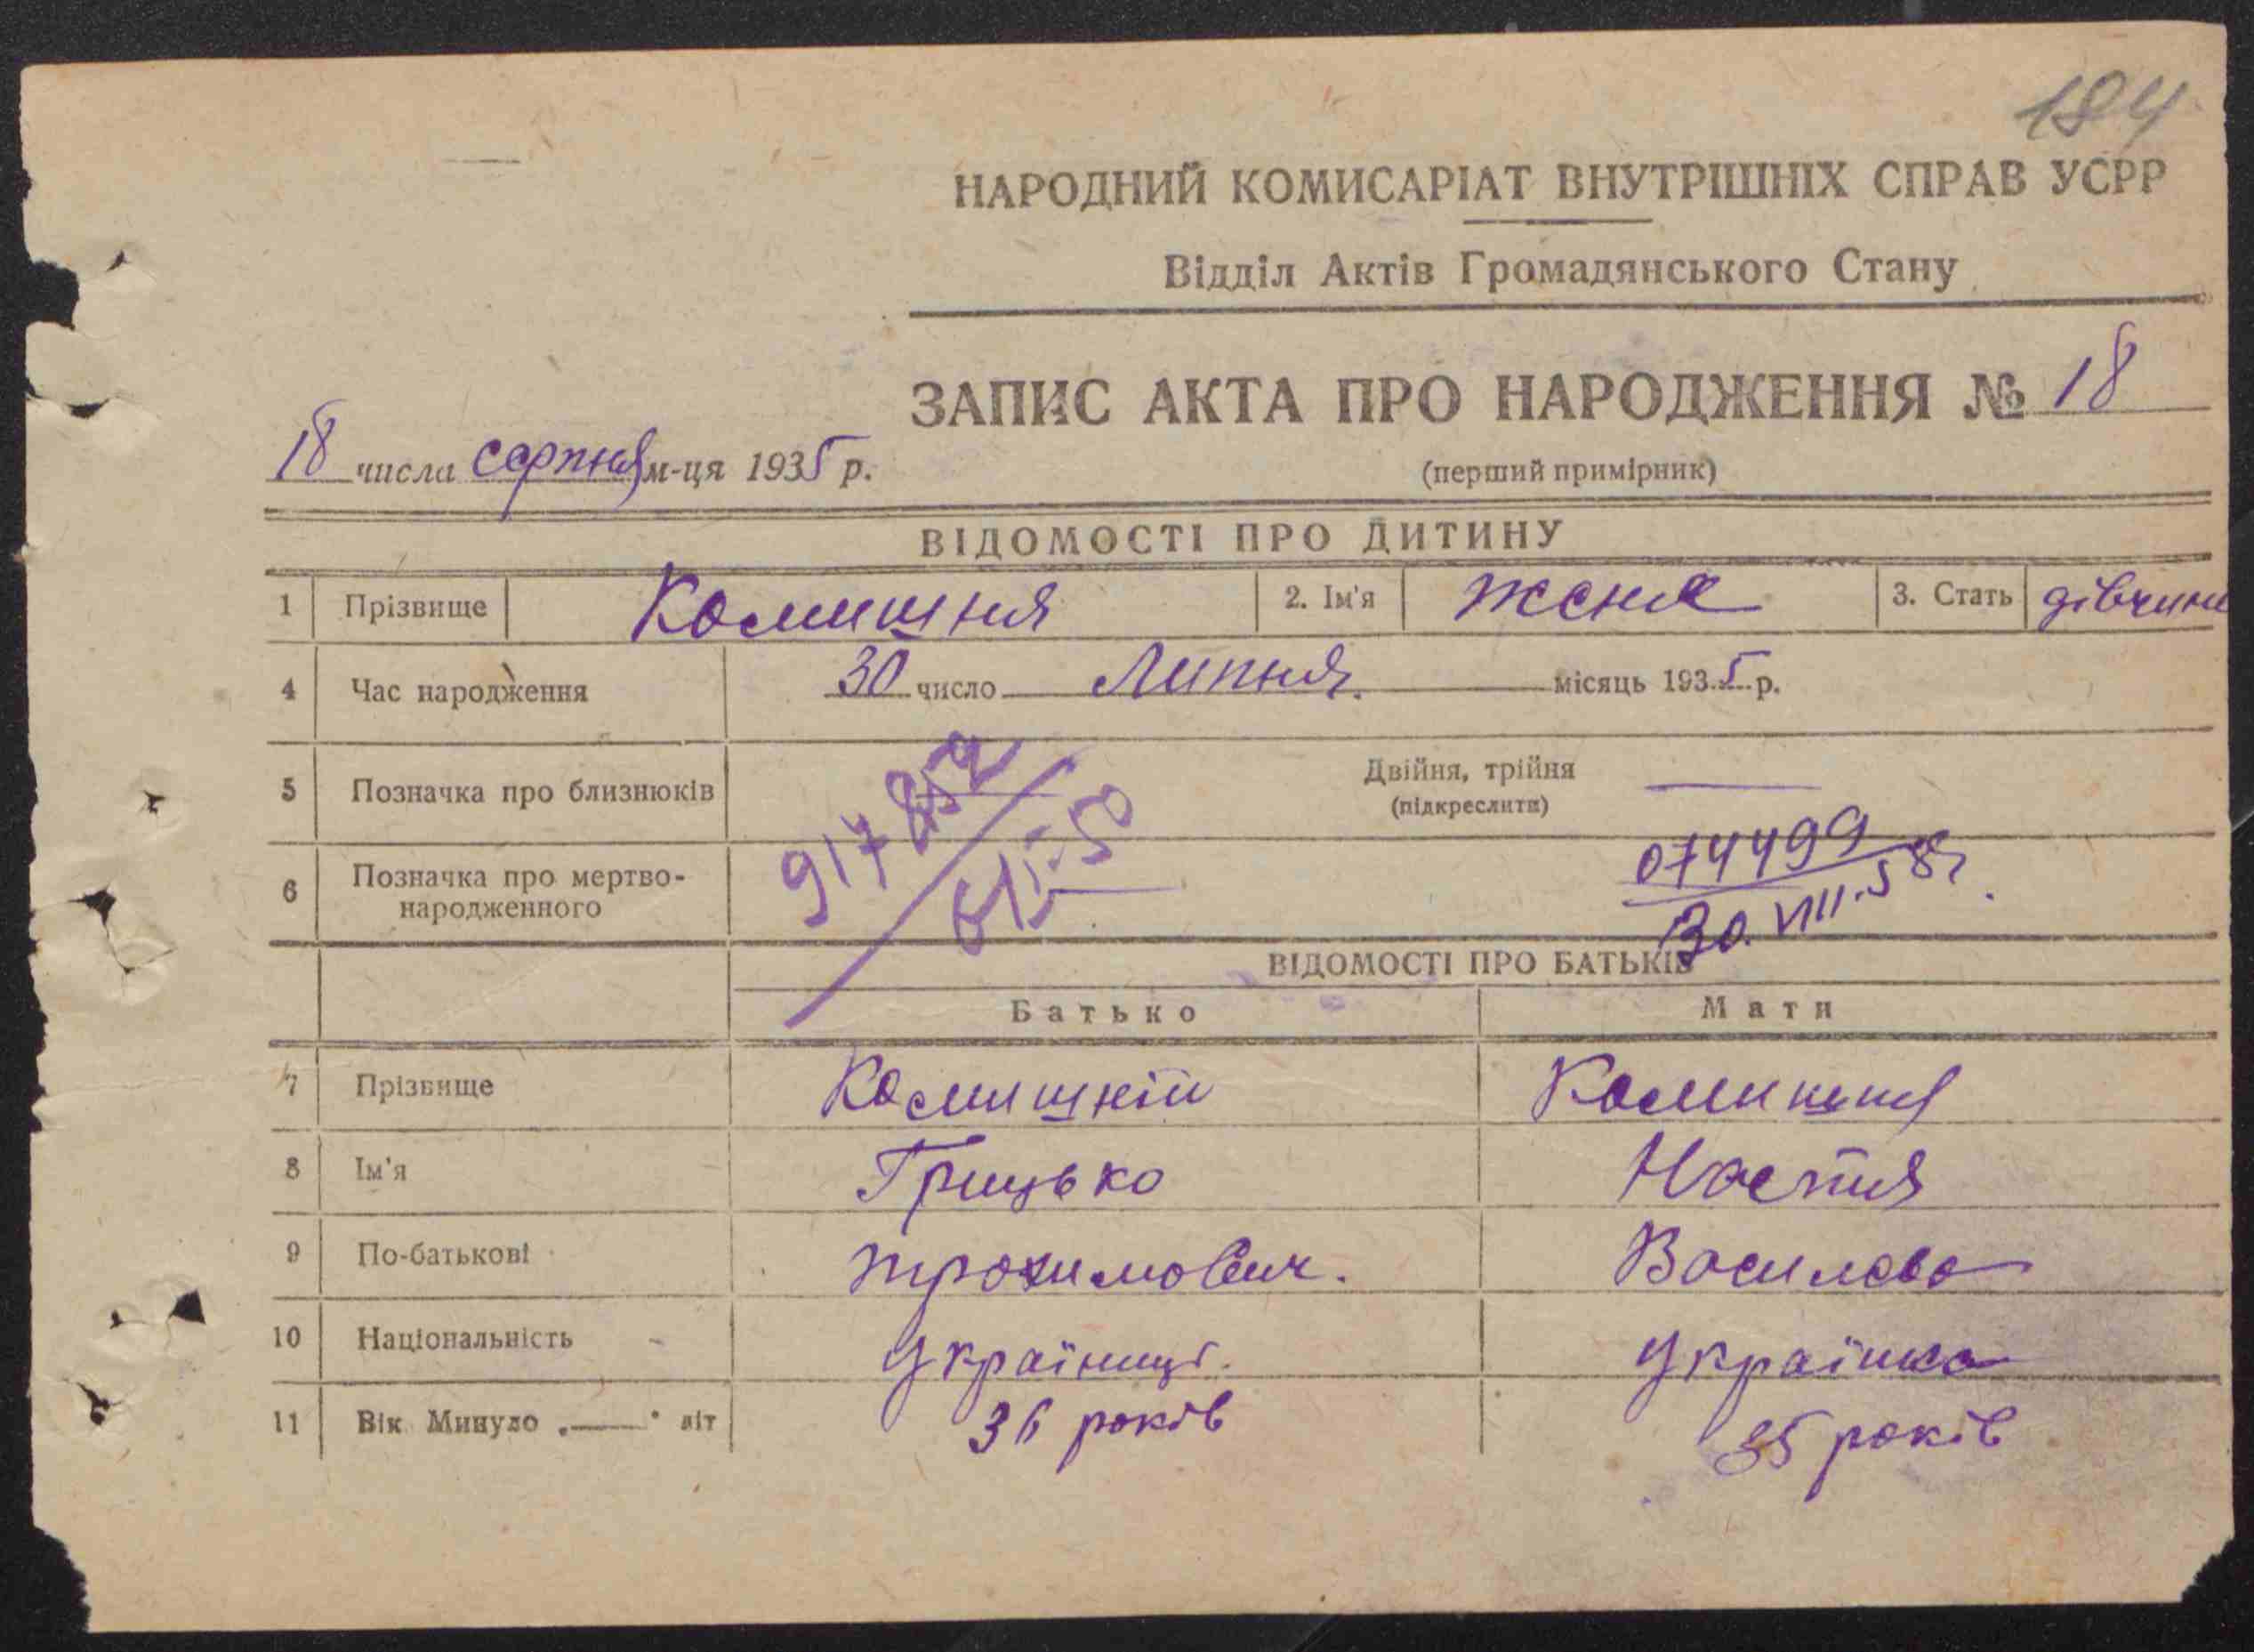 184
НАРОДНИЙ КОМИСАРІАТ ВНУТРІШНІХ СПРАВ УСРР
Відділ Актів Громадянського Стану
ЗАПИС АКТА ПРО НАРОДЖЕННЯ № 18
18 числа серпня м-ця 1935 р.
(перший примірник)
ВІДОМОСТІ ПРО ДИТИНУ
1 Прізвище Комишня 2. Ім'я Женя 3. Стать дівчина
4 Час народження 30 число Липня. місяць 1935 р.
5 Позначка про близнюків Двійня, трійня
(підкреслити)
917852
074499
30.VIII.58г.
6 Позначка про мертво-
народженного
ВІДОМОСТІ ПРО БАТЬКІВ
Батько Мати
7 Прізвище Комишній Комишня
8 Ім'я Грицько Настя
9 По-батькові Трохимович. Василева
10 Національність Українець. Українка
11 Вік Минуло „—" літ 36 років 35 років